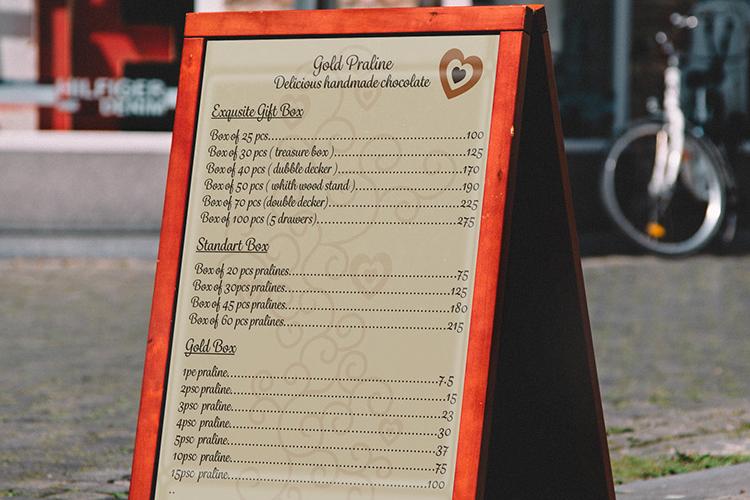 HILFIGER
DENIM
Gold Praline
Delicious handmade chocolate
Exqusite Gift Box
Box of 25 pcs...............................................100
Box of 30 pcs ( treasure box )................................125
Box of 40 pcs ( dubble decker )...............................170
Box of 50 pcs ( whith wood stand )............................190
Box of 70 pcs (double decker).................................225
Box of 100 pcs (5 drawers)....................................275
Standart Box
Box of 20 pcs pralines........................................75
Box of 30pcs pralines.........................................125
Box of 45 pcs pralines........................................180
Box of 60 pcs pralines........................................215
Gold Box
1pe praline...................................................7.5
2psc praline..................................................15
3psc praline..................................................23
4psc praline..................................................30
5psc praline..................................................37
10psc praline.................................................75
15psc praline.................................................100